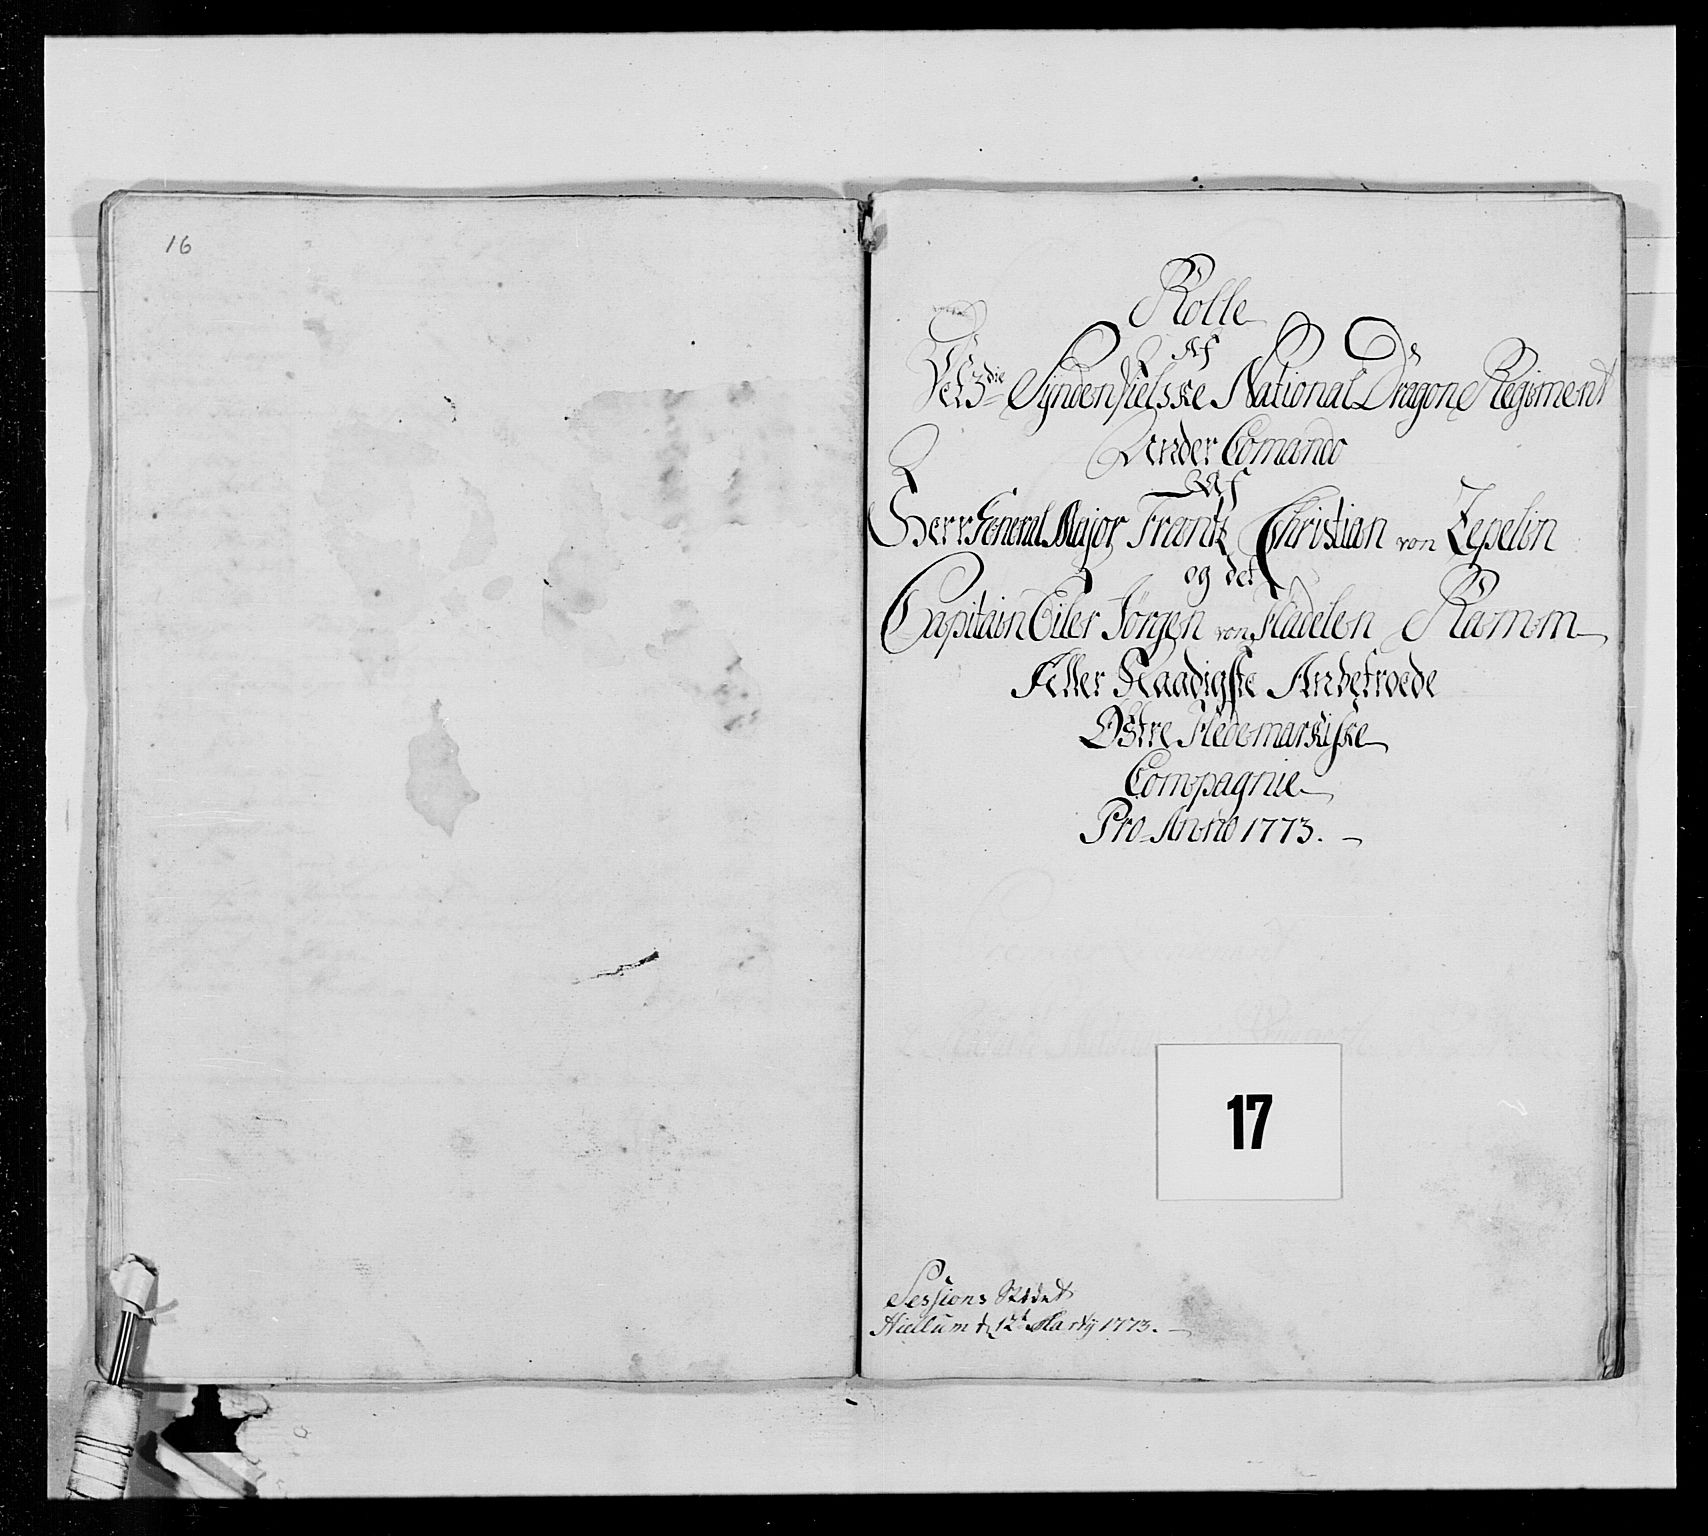 16
Rolle
Af
Det 3die Syndenfielske National Dragon Regiment
Under Comando
Af
Herr General Major Frantz Christian von Zepelin
og det
Capitain Eiler Jørgen von Hadelen Ramm
Aller Naadigste Anbetroede
Østre Hedemarkiske
Compagnie
Pro Anno 1773.
17
Sessions Stædet
Hiellum d 12t Marty 1773.